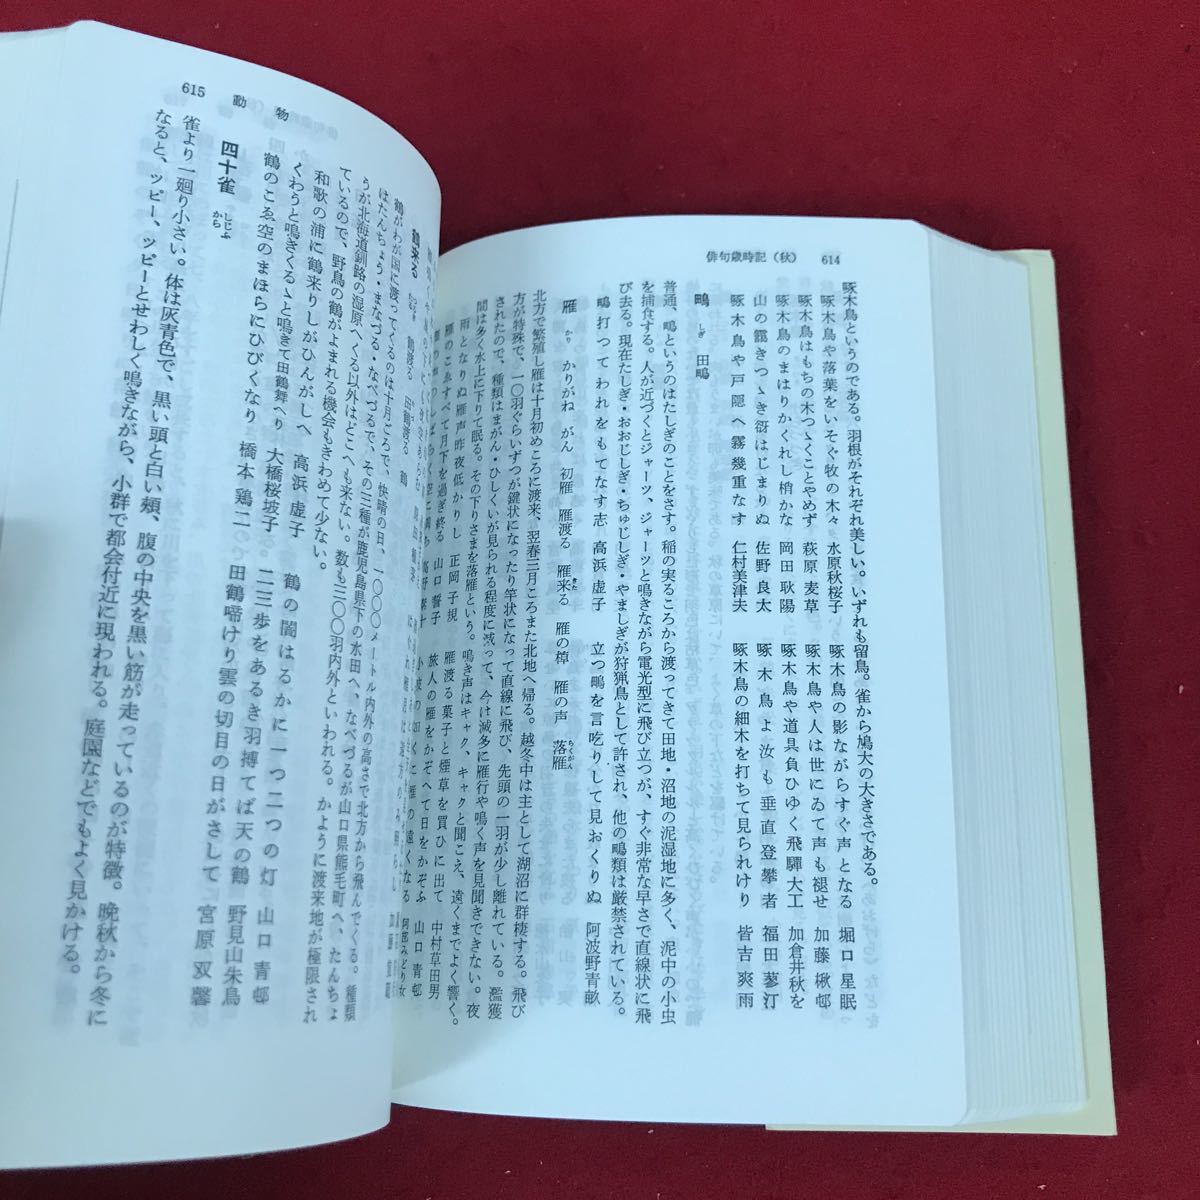 俳句歳時記（秋） 614
啄木鳥というのである。羽根がそれぞれ美しい。いずれも留鳥。雀から鳩大の大きさである。
啄木鳥や落葉をいそぐ牧の木々 水原秋桜子 啄木鳥の影ながらすぐ声となる 堀口星眠
啄木鳥はもちの木つゝくことやめず 萩原麦草 啄木鳥や人は世にゐて声も褪せ 加藤楸邨
啄木鳥のまはりかくれし梢かな 岡田耿陽 啄木鳥や道具負ひゆく飛驒大工 加倉井秋を
山の靄きつゝき谺はじまりぬ 佐野良太 啄木鳥よ汝も垂直登攀者 福田蓼汀
啄木鳥や戸隠へ霧幾重なす 仁村美津夫 啄木鳥の細木を打ちて見られけり 皆吉爽雨
鴫 しぎ 田鴫
普通、鴫というのはたしぎのことをさす。稲の実るころから渡ってきて田地・沼地の泥湿地に多く、泥中の小虫
を捕食する。人が近づくとジャーッ、ジャーッと鳴きながら電光型に飛び立つが、すぐ非常な早さで直線状に飛
び去る。現在たしぎ・おおじしぎ・ちゅじしぎ・やましぎが狩猟鳥として許され、他の鴫類は厳禁されている。
鴫打つてわれをもてなす志 高浜虚子 立つ鴫を言吃りして見おくりぬ 阿波野青畝
雁 かり かりがね がん 初雁 雁渡る 雁来る きた 雁の棹 雁の声 落雁 らくがん
北方で繁殖し雁は十月初めころに渡来、翌春三月ころまた北地へ帰る。越冬中は主として湖沼に群棲する。飛び
方が特殊で、一〇羽ぐらいずつが鍵状になったり竿状になって直線に飛び、先頭の一羽が少し離れている。濫獲
されたので、種類はまがん・ひしくいが見られる程度に減って、今は滅多に雁行や鳴く声を見聞きできない。夜
間は多く水上に下りて眠る。その下りさまを落雁という。鳴き声はキャク、キャクと聞こえ、遠くまでよく響く。
雨となりぬ雁声昨夜低かりし 正岡子規 雁渡る菓子と煙草を買ひに出て 中村草田男
雁のこゑすべて月下を過ぎ終る 山口誓子 旅人の雁をかぞへて日をかぞふ 山口青邨
615 動物
鶴来る 鶴渡る 田鶴渡る 鶴
鶴がわが国に渡ってくるのは十月ごろで、快晴の日、一〇〇〇メートル内外の高さで北方から飛んでくる。種類
はたんちょう・まなづる・なべづるで、その三種が鹿児島県下の水田へ、なべづるが山口県熊毛町へ、たんちょ
うが北海道釧路の湿原へくる以外はどこへも来ない。数も三〇〇羽内外といわれる。かように渡来地が極限され
ているので、野鳥の鶴がよまれる機会もきわめて少ない。
和歌の浦に鶴来りしがひんがしへ 高浜虚子 鶴の闇はるかに一つ二つの灯 山口青邨
くわうと鳴ぎくるゝと鳴ぎて田鶴舞へり 大橋桜坡子 二三歩をあるき羽搏てば天の鶴 野見山朱鳥
鶴のこゑ空のまほらにひびくなり 橋本鶏二 田鶴啼けり雲の切目の日がさして 宮原双馨
四十雀 しじふから
雀より一廻り小さい。体は灰青色で、黒い頭と白い頬、腹の中央を黒い筋が走っているのが特徴。晩秋から冬に
なると、ツッピー、ツッピーとせわしく鳴きながら、小群で都会付近に現われる。庭園などでもよく見かける。